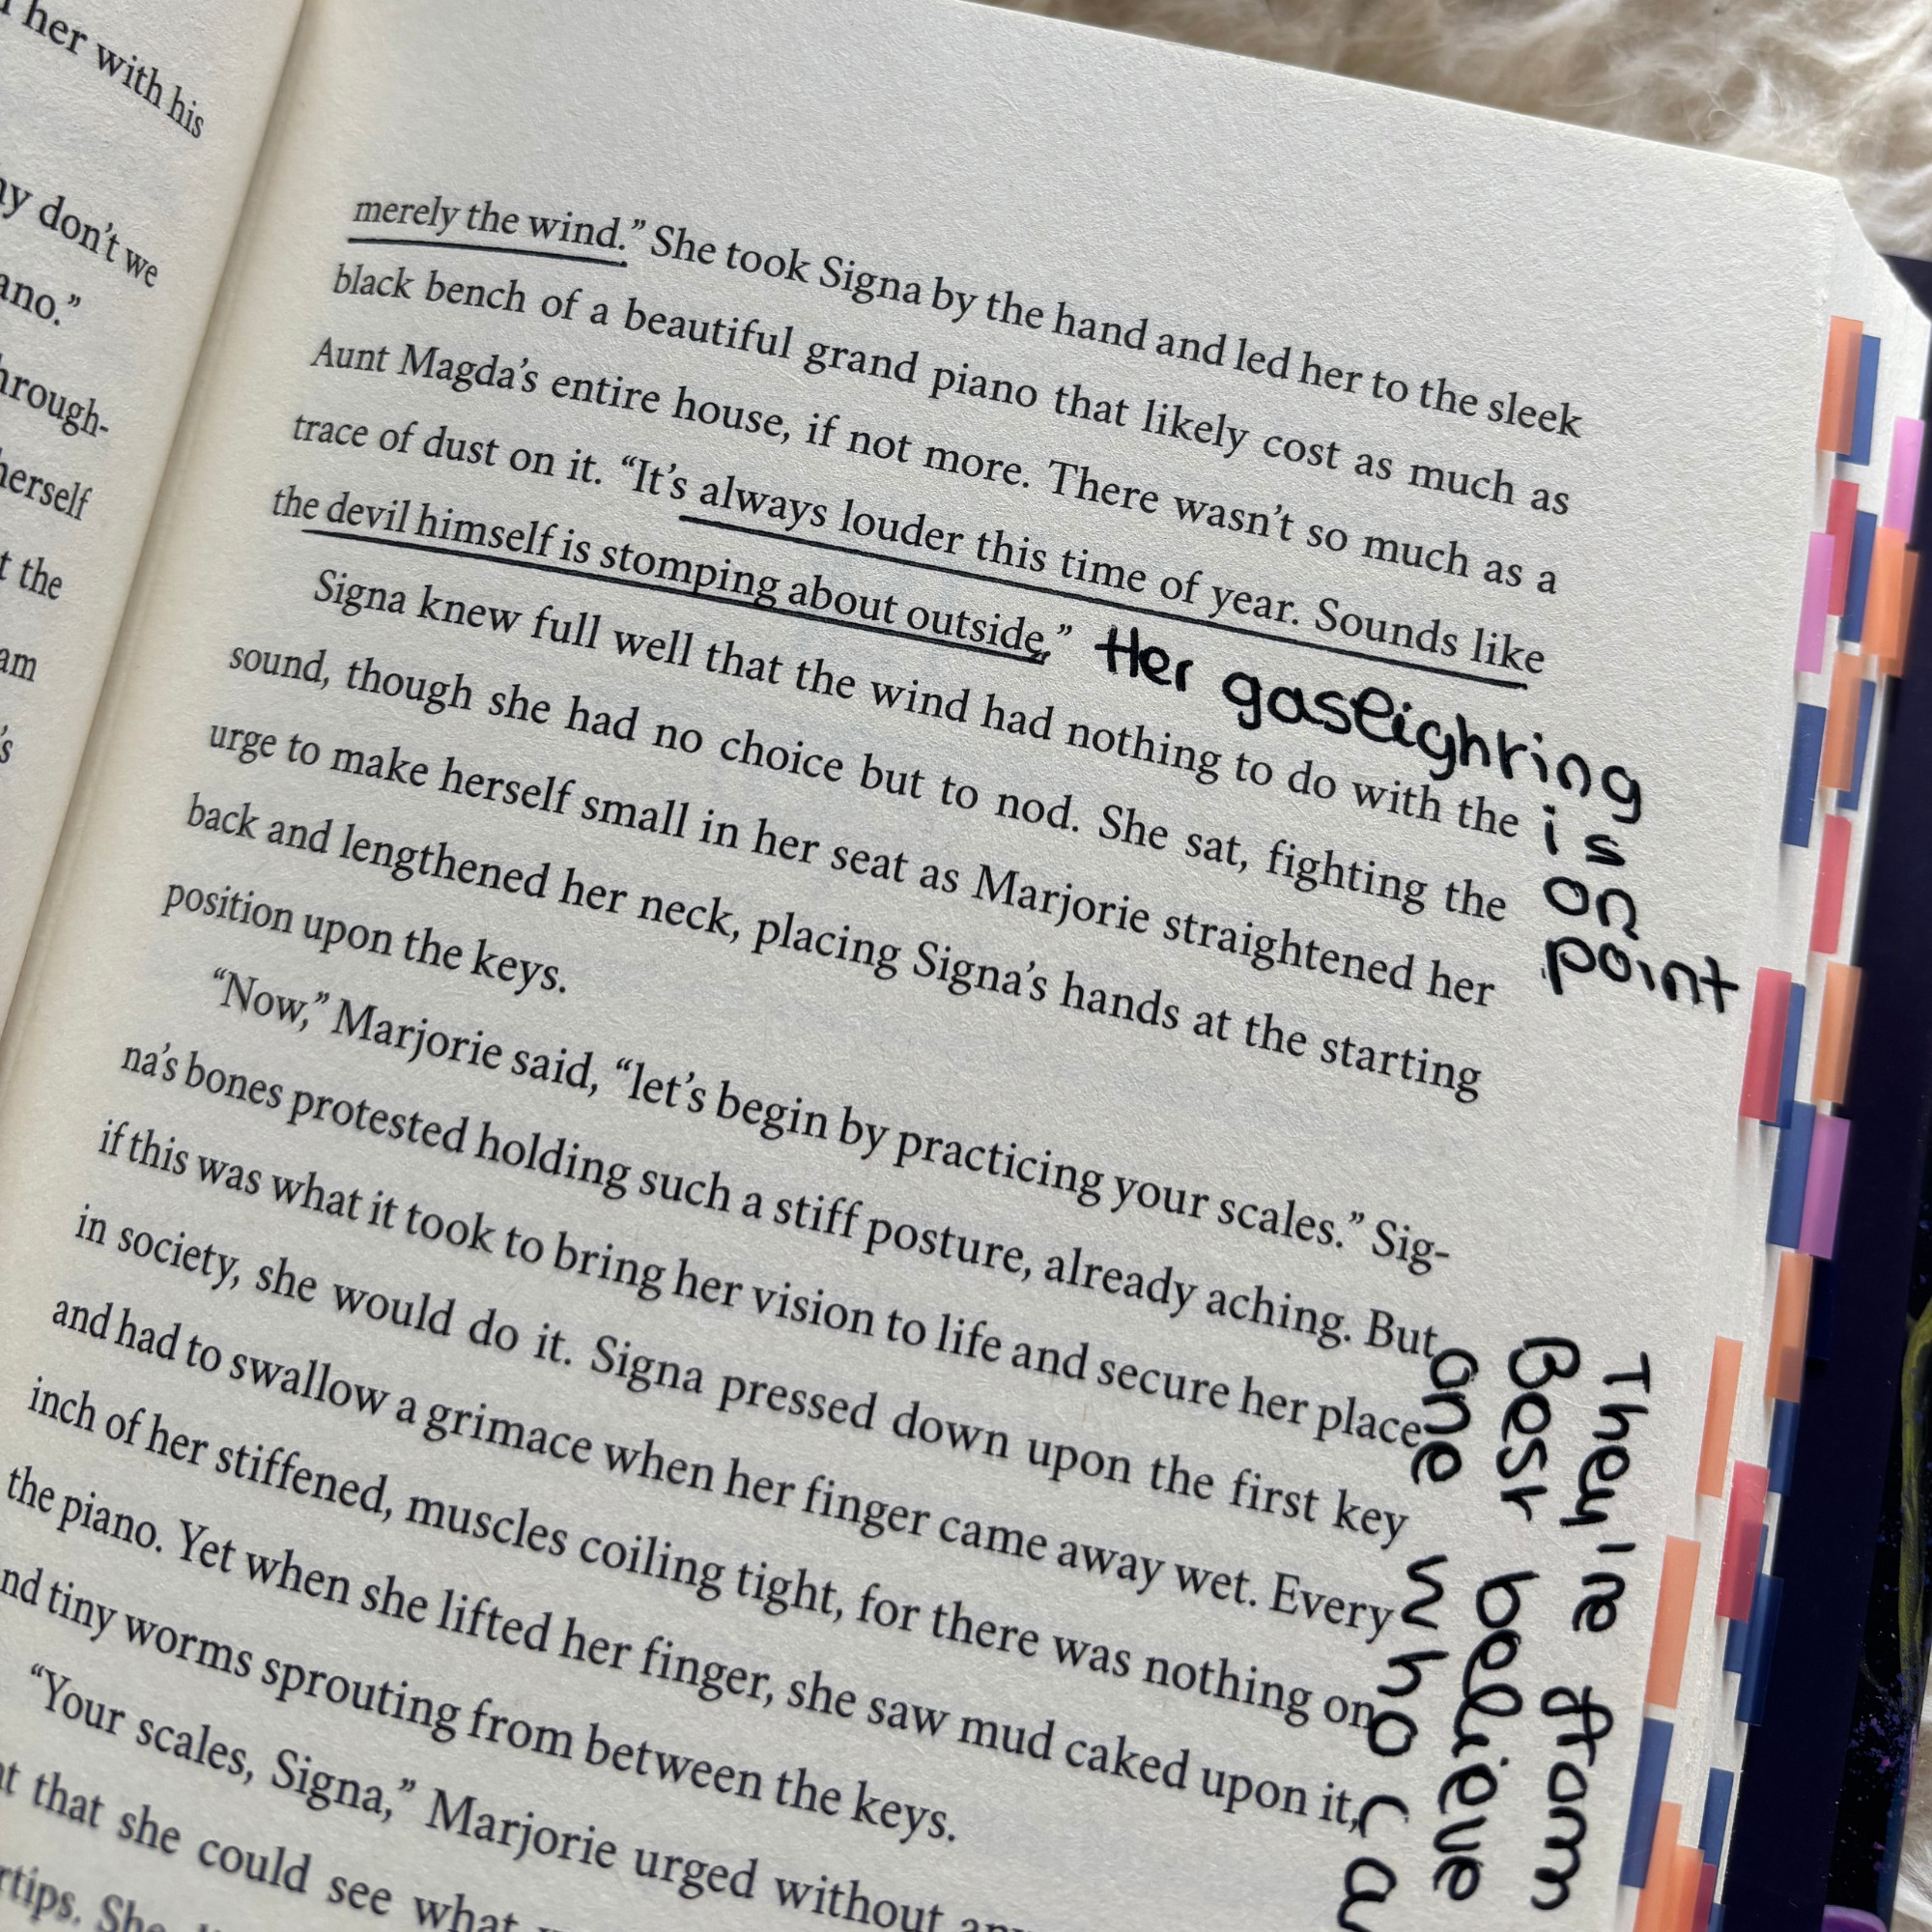 her with his
don't we
ano."
hrough-
herself
t the
am
's
merely the wind." She took Signa by the hand and led her to the sleek
black bench of a beautiful grand piano that likely cost as much as
Aunt Magda's entire house, if not more. There wasn't so much as a
trace of dust on it. "It's always louder this time of year. Sounds like
the devil himself is stomping about outside."
Her gasleighting
is
on
point
Signa knew full well that the wind had nothing to do with the
sound, though she had no choice but to nod. She sat, fighting the
urge to make herself small in her seat as Marjorie straightened her
back and lengthened her neck, placing Signa's hands at the starting
position upon the keys.
"Now," Marjorie said, "let's begin by practicing your scales." Sig-
na's bones protested holding such a stiff posture, already aching. But
if this was what it took to bring her vision to life and secure her place
in society, she would do it. Signa pressed down upon the first key
and had to swallow a grimace when her finger came away wet. Every
inch of her stiffened, muscles coiling tight, for there was nothing on
the piano. Yet when she lifted her finger, she saw mud caked upon it,
nd tiny worms sprouting from between the keys.
"Your scales, Signa," Marjorie urged without
t that she could see what
rtips. She
They're
Best believe
one who ca